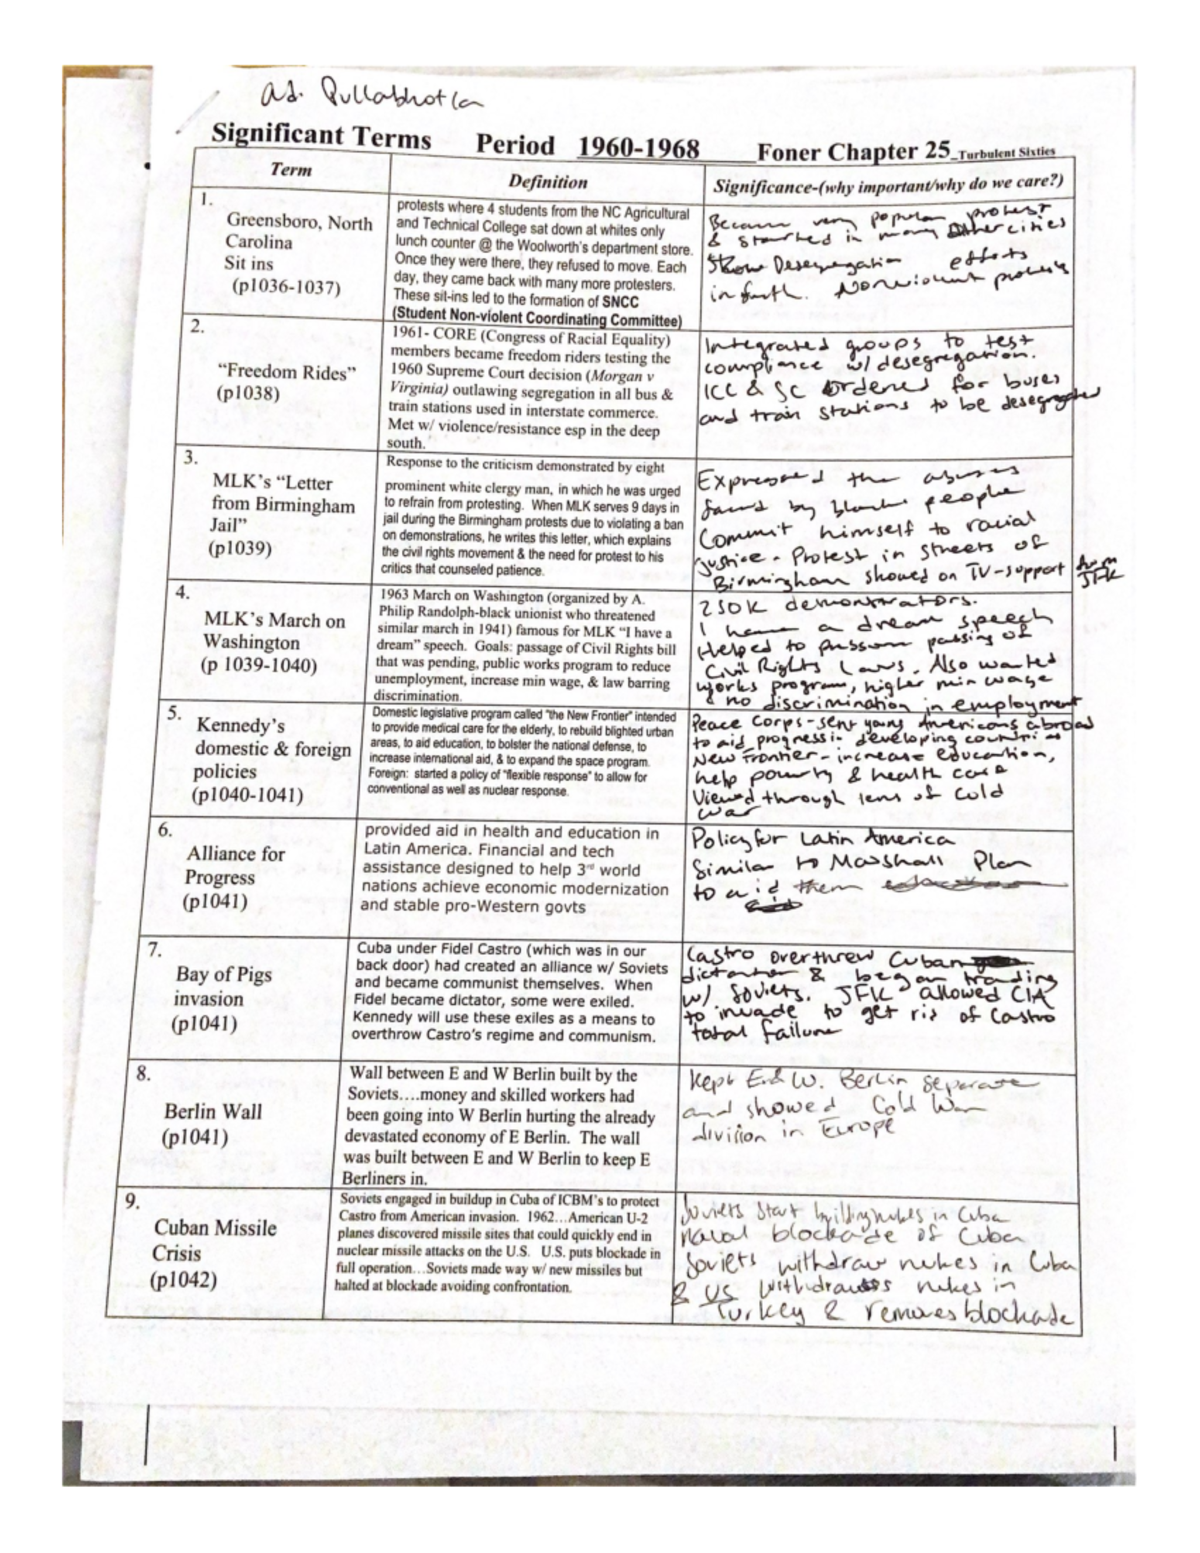 Significant Terms Period 1960-1968 Foner Chapter 25 Turbulent Sixties
Term Definition Significance-(why important/why do we care?)
1.
Greensboro, North
Carolina
Sit ins
(p1036-1037)
protests where 4 students from the NC Agricultural
and Technical College sat down at whites only
lunch counter @ the Woolworth's department store.
Once they were there, they refused to move. Each
day, they came back with many more protesters.
These sit-ins led to the formation of SNCC
(Student Non-violent Coordinating Committee)
Became very popular protest
& started in many other cities
Show Desegregation efforts
in south. Nonviolent protests
2.
"Freedom Rides"
(p1038)
1961- CORE (Congress of Racial Equality)
members became freedom riders testing the
1960 Supreme Court decision (Morgan v
Virginia) outlawing segregation in all bus &
train stations used in interstate commerce.
Met w/ violence/resistance esp in the deep
south.
Integrated groups to test
compliance w/ desegregation.
ICC & SC ordered for buses
and train stations to be desegregated
3.
MLK's "Letter
from Birmingham
Jail"
(p1039)
Response to the criticism demonstrated by eight
prominent white clergy man, in which he was urged
to refrain from protesting. When MLK serves 9 days in
jail during the Birmingham protests due to violating a ban
on demonstrations, he writes this letter, which explains
the civil rights movement & the need for protest to his
critics that counseled patience.
Expressed the abuses
faced by black people
Commit himself to racial
justice - Protest in streets of
Birmingham showed on TV-support from
JFK
4.
MLK's March on
Washington
(p 1039-1040)
1963 March on Washington (organized by A.
Philip Randolph-black unionist who threatened
similar march in 1941) famous for MLK "I have a
dream" speech. Goals: passage of Civil Rights bill
that was pending, public works program to reduce
unemployment, increase min wage, & law barring
discrimination.
250K demonstrators.
I have a dream speech
Helped to passing of
Civil Rights Laws. Also wanted
works program, higher min wage
& no discrimination in employment
5.
Kennedy's
domestic & foreign
policies
(p1040-1041)
Domestic legislative program called "the New Frontier" intended
to provide medical care for the elderly, to rebuild blighted urban
areas, to aid education, to bolster the national defense, to
increase international aid, & to expand the space program.
Foreign: started a policy of "flexible response" to allow for
conventional as well as nuclear response.
Peace Corps-sent young Americans abroad
to aid progress in developing countries
New Frontier - increase education,
help poverty & health care
Viewed through lens of cold
war
6.
Alliance for
Progress
(p1041)
provided aid in health and education in
Latin America. Financial and tech
assistance designed to help 3rd world
nations achieve economic modernization
and stable pro-Western govts
Policy for Latin America
Similar to Marshall Plan
to aid them
7.
Bay of Pigs
invasion
(p1041)
Cuba under Fidel Castro (which was in our
back door) had created an alliance w/ Soviets
and became communist themselves. When
Fidel became dictator, some were exiled.
Kennedy will use these exiles as a means to
overthrow Castro's regime and communism.
Castro overthrew Cuban
dictator & began trading
w/ Soviets. JFK allowed CIA
to invade to get rid of Castro
total failure
8.
Berlin Wall
(p1041)
Wall between E and W Berlin built by the
Soviets….money and skilled workers had
been going into W Berlin hurting the already
devastated economy of E Berlin. The wall
was built between E and W Berlin to keep E
Berliners in.
Kept E and W. Berlin separate
and showed Cold War
division in Europe
9.
Cuban Missile
Crisis
(p1042)
Soviets engaged in buildup in Cuba of ICBM's to protect
Castro from American invasion. 1962…American U-2
planes discovered missile sites that could quickly end in
nuclear missile attacks on the U.S. U.S. puts blockade in
full operation…Soviets made way w/ new missiles but
halted at blockade avoiding confrontation.
Soviets start building nukes in Cuba
Naval blockade of Cuba
Soviets withdraw nukes in Cuba
& US withdraws nukes in
Turkey & removes blockade